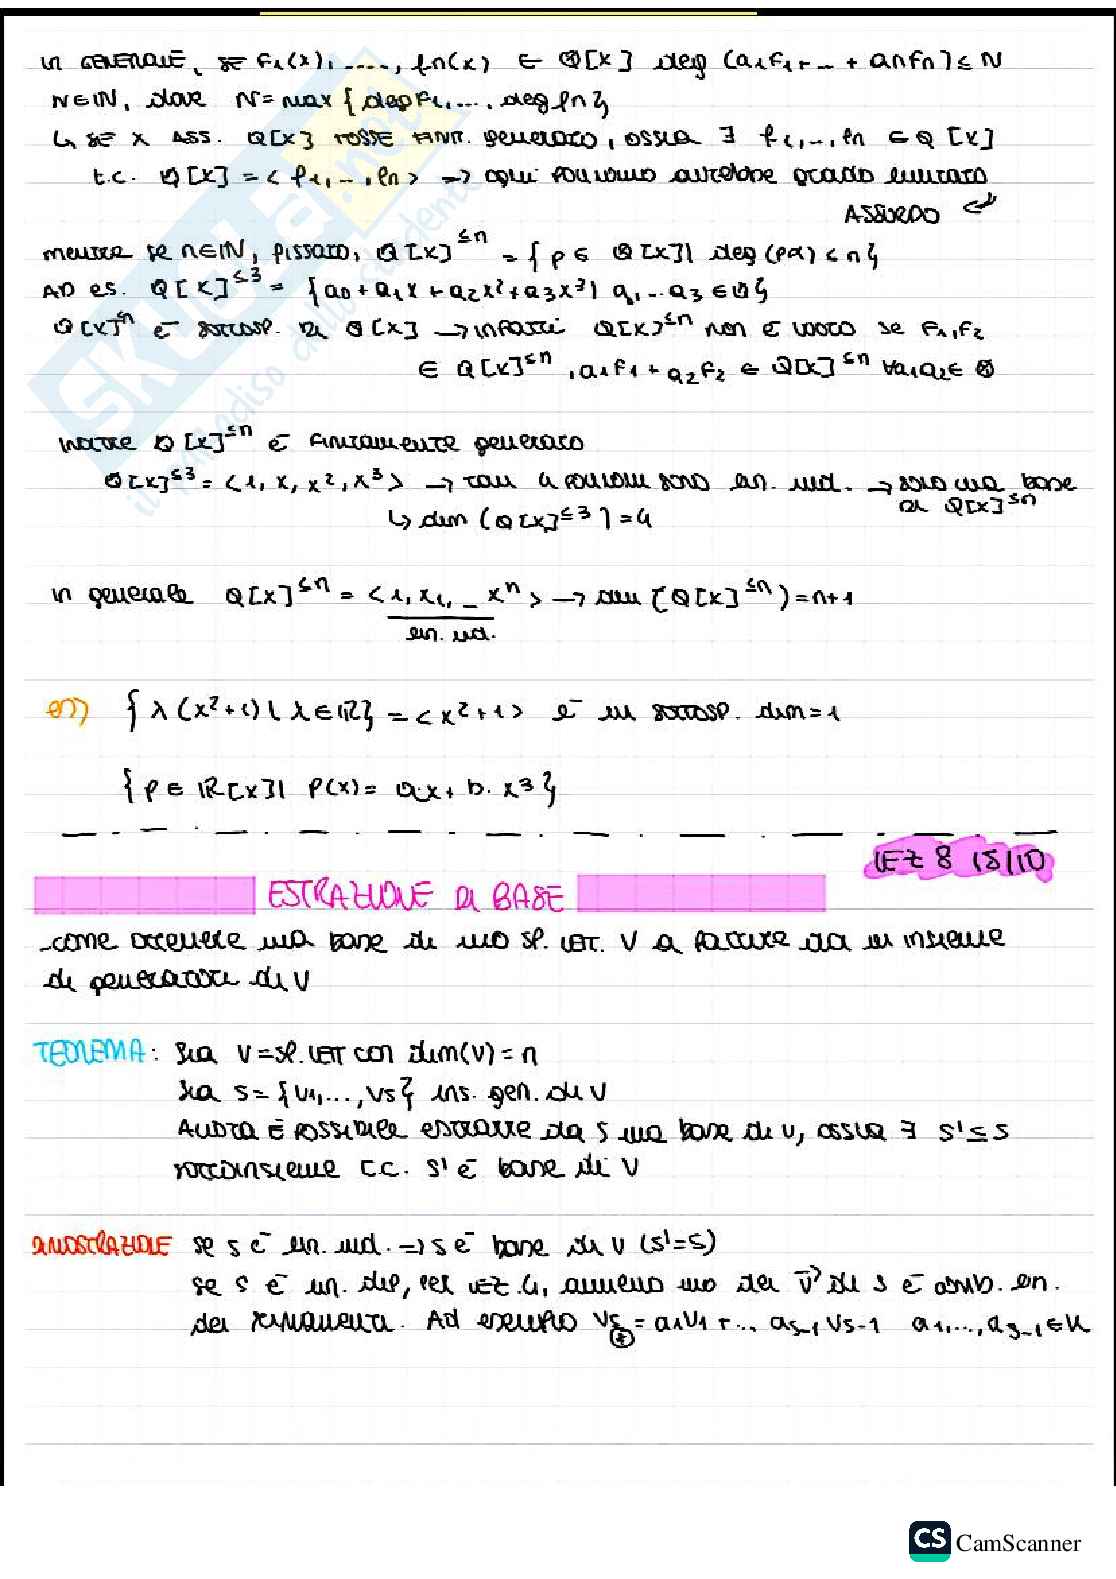 in GENERALE, SE F1(x), ...., fn(x) ∈ Q[x] deg (a1F1+...+ anfn) ≤ N
N∈IN, dove N = max { deg F1, ..., deg fn}
↳ SE X ASS. Q[x] FOSSE FINIT. generato, ossia ∃ f1,..,fn ∈ Q [x]
t.c. Q[x] = < f1,..,fn > → ogni polinomio avrebbe grado limitato
ASSURDO
mentre se n∈IN, fissato, Q[x]≤n = { p ∈ Q[x] | deg (p(x) ≤ n}
AD es. Q[x]≤3 = {a0 + a1x + a2x² + a3x³ | a,...a3 ∈ Q}
Q[x]≤n è sottosp. di Q[x] → infatti Q[x]≤n non è vuoto se F1, F2
∈ Q[x]≤n, a1F1 + a2F2 ∈ Q[x]≤n ∀a1a2 ∈ Q
inoltre Q[x]≤n è finitamente generato
Q[x]≤3 = < 1, x, x², x³ > → tali 4 polinomi sono lin. ind. → sono una base
di Q[x]≤n
↳ dim (Q[x]≤3) = 4
in generale Q[x]≤n = < 1, x1, _ xⁿ > → dim (Q[x]≤n) = n+1
lin. ind.
es) { λ (x²+1) | λ ∈ IR} = < x²+1 > è un sottosp. dim = 1
{ p ∈ IR[x] | P(x) = a·x + b·x³}
LEZ 8 15/10
ESTRAZIONE DI BASE
-come ottenere una base di uno SP. VET. V a partire da un insieme
di generatori di V
TEOREMA: Sia V = SP. VETT con dim(V) = n
Sia S = {v1, ..., vs} ins. gen. di V
Allora È POSSIBILE estrarre da S una base di V, ossia ∃ S' ⊆ S
sottoinsieme t.c. S' è base di V
DIMOSTRAZIONE se S è lin. ind. → S è base di V (S' = S)
se S è lin. dip, per LEZ. 4, almeno uno dei v di S è comb. lin.
dei rimanenti. Ad esempio vs = a1v1 + ... as-1 vs-1 a1,...,as-1 ∈ K
CS CamScanner